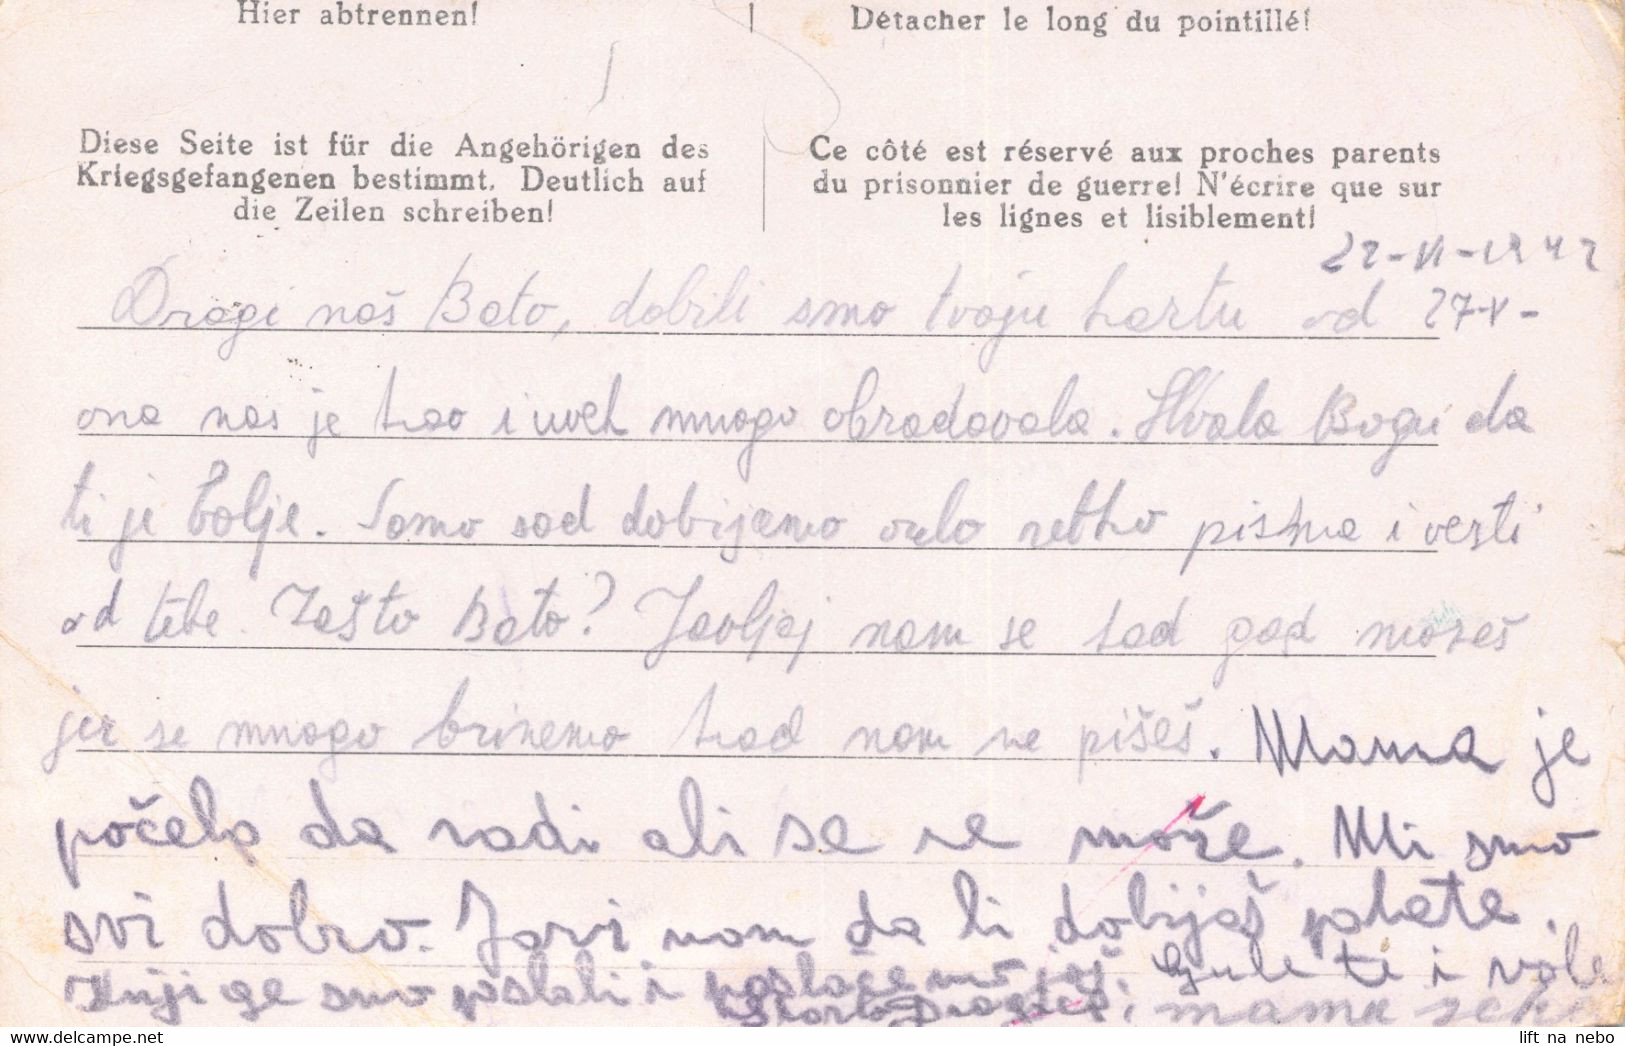 Hier abtrennen!
Détacher le long du pointillé!
Diese Seite ist für die Angehörigen des
Kriegsgefangenen bestimmt. Deutlich auf
die Zeilen schreiben!
Ce côté est réservé aux proches parents
du prisonnier de guerre! N'écrire que sur
les lignes et lisiblement!
Dragi naš Bato, dobili smo tvoju kartu od 27-V-
ona nas je kao i uvek mnogo obradovala. Hvala Bogu da
ti je bolje. Samo sad dobijamo vrlo retko pisma i vesti
od tebe. Zašto Bato? Javljaj nam se kad god možeš
jer se mnogo brinemo kad nam ne pišeš. Mama je
počela da radi ali se ne može. Mi smo
svi dobro. Javi nam da li dobijaš pakete.
Knjige smo poslali i poslaćemo još. ti i vole
mama
lift na nebo